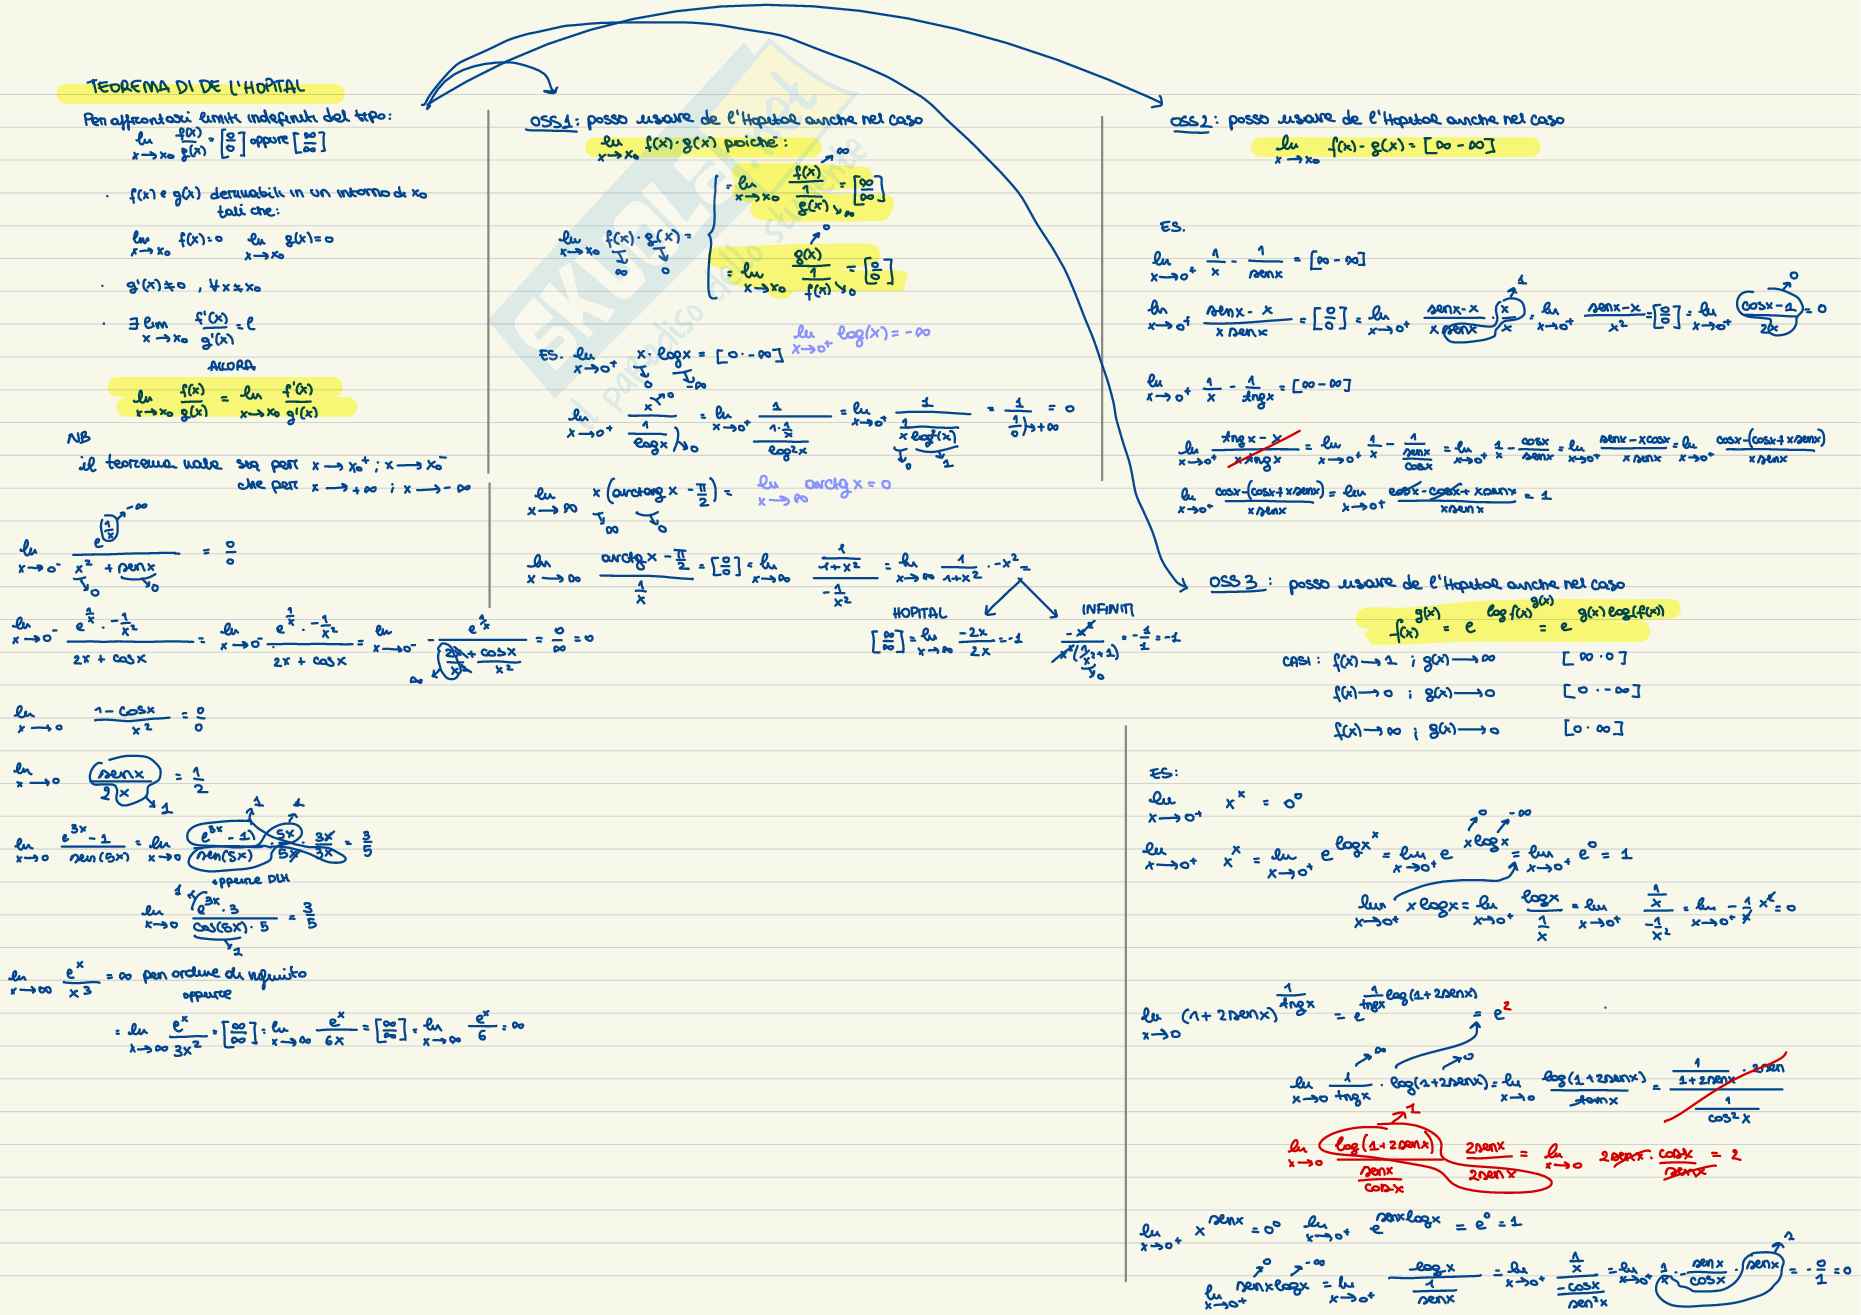 TEOREMA DI DE L'HOPITAL
Per affrontarsi limiti indefiniti del tipo:
lim x→x₀ f(x)/g(x) = [0/0] oppure [∞/∞]
· f(x) e g(x) derivabili in un intorno di x₀
tali che:
lim x→x₀ f(x)=0 lim x→x₀ g(x)=0
· g'(x)≠0 , ∀x≠x₀
· ∃ lim x→x₀ f'(x)/g'(x) = l
ALLORA
lim x→x₀ f(x)/g(x) = lim x→x₀ f'(x)/g'(x)
NB
il teorema vale sia per x→x₀⁺ ; x→x₀⁻
che per x→+∞ ; x→-∞
lim x→0⁻ e^(1/x) →-∞ / (x² →0 + senx →0) = 0/0
lim x→0⁻ (e^(1/x) · -1/x²)/(2x + cosx) = lim x→0⁻ (e^(1/x) · -1/x²)/(2x + cosx) = lim x→0⁻ - e^(1/x)/((2x + cosx)/x²) = 0/∞ = 0
∞
lim x→0 (1-cosx)/x² = 0/0
lim x→0 senx/2x = 1/2
1
lim x→0 (e^(3x) - 1)/sen(5x) = lim x→0 (e^(3x) - 1)/sen(5x) · 5x/5x · 3x/3x = 3/5
1 1
oppure DLH
lim x→0 (e^(3x) · 3)/(cos(5x) · 5) = 3/5
1 1
lim x→∞ e^x/x³ = ∞ per ordine di infinito
oppure
= lim x→∞ e^x/3x² = [∞/∞] = lim x→∞ e^x/6x = [∞/∞] = lim x→∞ e^x/6 = ∞
OSS1: posso usare de l'Hopital anche nel caso
lim x→x₀ f(x)·g(x) poiché:
lim x→x₀ f(x) →∞ · g(x) →0 =
= lim x→x₀ f(x) →∞ / (1/g(x)) →∞ = [∞/∞]
= lim x→x₀ g(x) →0 / (1/f(x)) →0 = [0/0]
lim x→0⁺ log(x) = -∞
ES. lim x→0⁺ x →0 · logx →-∞ = [0·-∞]
lim x→0⁺ x →0 / (1/logx) →0 = lim x→0⁺ 1/((1·1/x)/log²x) = lim x→0⁺ 1/(1/(x log²(x))) = 1/(1/0) →+∞ = 0
0 1
lim x→∞ x →∞ (arctang x - π/2) →0 = lim x→∞ arctg x = 0
lim x→∞ (arctg x - π/2)/(1/x) = [0/0] = lim x→∞ (1/(1+x²))/(-1/x²) = lim x→∞ 1/(1+x²) · -x² =
HOPITAL
[∞/∞] = lim x→∞ -2x/2x = -1
INFINITI
-x²/(x²(1/x² +1)) = -1/1 = -1
0
OSS2: posso usare de l'Hopital anche nel caso
lim x→x₀ f(x) - g(x) = [∞-∞]
ES.
lim x→0⁺ 1/x - 1/senx = [∞-∞]
lim x→0⁺ (senx - x)/(x senx) = [0/0] = lim x→0⁺ (senx-x)/(x senx) · x/x = lim x→0⁺ (senx-x)/x² = [0/0] = lim x→0⁺ (cosx-1)/2x = 0
1 0
lim x→0⁺ 1/x - 1/tngx = [∞-∞]
lim x→0⁺ (tngx - x)/(x tngx) = lim x→0⁺ 1/x - 1/(senx/cosx) = lim x→0⁺ 1/x - cosx/senx = lim x→0⁺ (senx-xcosx)/(x senx) = lim x→0⁺ (cosx-(cosx+xsenx))/(xsenx)
lim x→0⁺ (cosx-(cosx+xsenx))/(xsenx) = lim x→0⁺ (cosx-cosx+xsenx)/(xsenx) = 1
OSS 3: posso usare de l'Hopital anche nel caso
f(x)^g(x) = e^(log f(x)^g(x)) = e^(g(x) log(f(x)))
CASI: f(x)→1 ; g(x)→∞ [∞·0]
f(x)→0 ; g(x)→0 [0·-∞]
f(x)→∞ ; g(x)→0 [0·∞]
ES:
lim x→0⁺ x^x = 0⁰
lim x→0⁺ x^x = lim x→0⁺ e^(logx^x) = lim x→0⁺ e^(x →0 logx →-∞) = lim x→0⁺ e⁰ = 1
lim x→0⁺ xlogx = lim x→0⁺ logx/(1/x) = lim x→0⁺ (1/x)/(-1/x²) = lim x→0⁺ -1/x x² = 0
lim x→0 (1+2senx)^(1/tngx) = e^(1/tngx log(1+2senx)) = e²
lim x→0 1/tngx →∞ · log(1+2senx) →0 = lim x→0 log(1+2senx)/tanx = (1/(1+2senx) · 2sen)/(1/cos²x)
lim x→0 log(1+2senx)/(senx/cosx) 2senx/2senx = lim x→0 2senx · cosx/senx = 2
1
lim x→0⁺ x^senx = 0⁰ lim x→0⁺ e^(senxlogx) = e⁰ = 1
lim x→0⁺ senx →0 logx →-∞ = lim x→0⁺ logx/(1/senx) = lim x→0⁺ (1/x)/(-cosx/sen²x) = lim x→0⁺ 1/x · -senx/cosx · senx = -0/1 = 0
1
SKUOLA.net
il paradiso dello studente